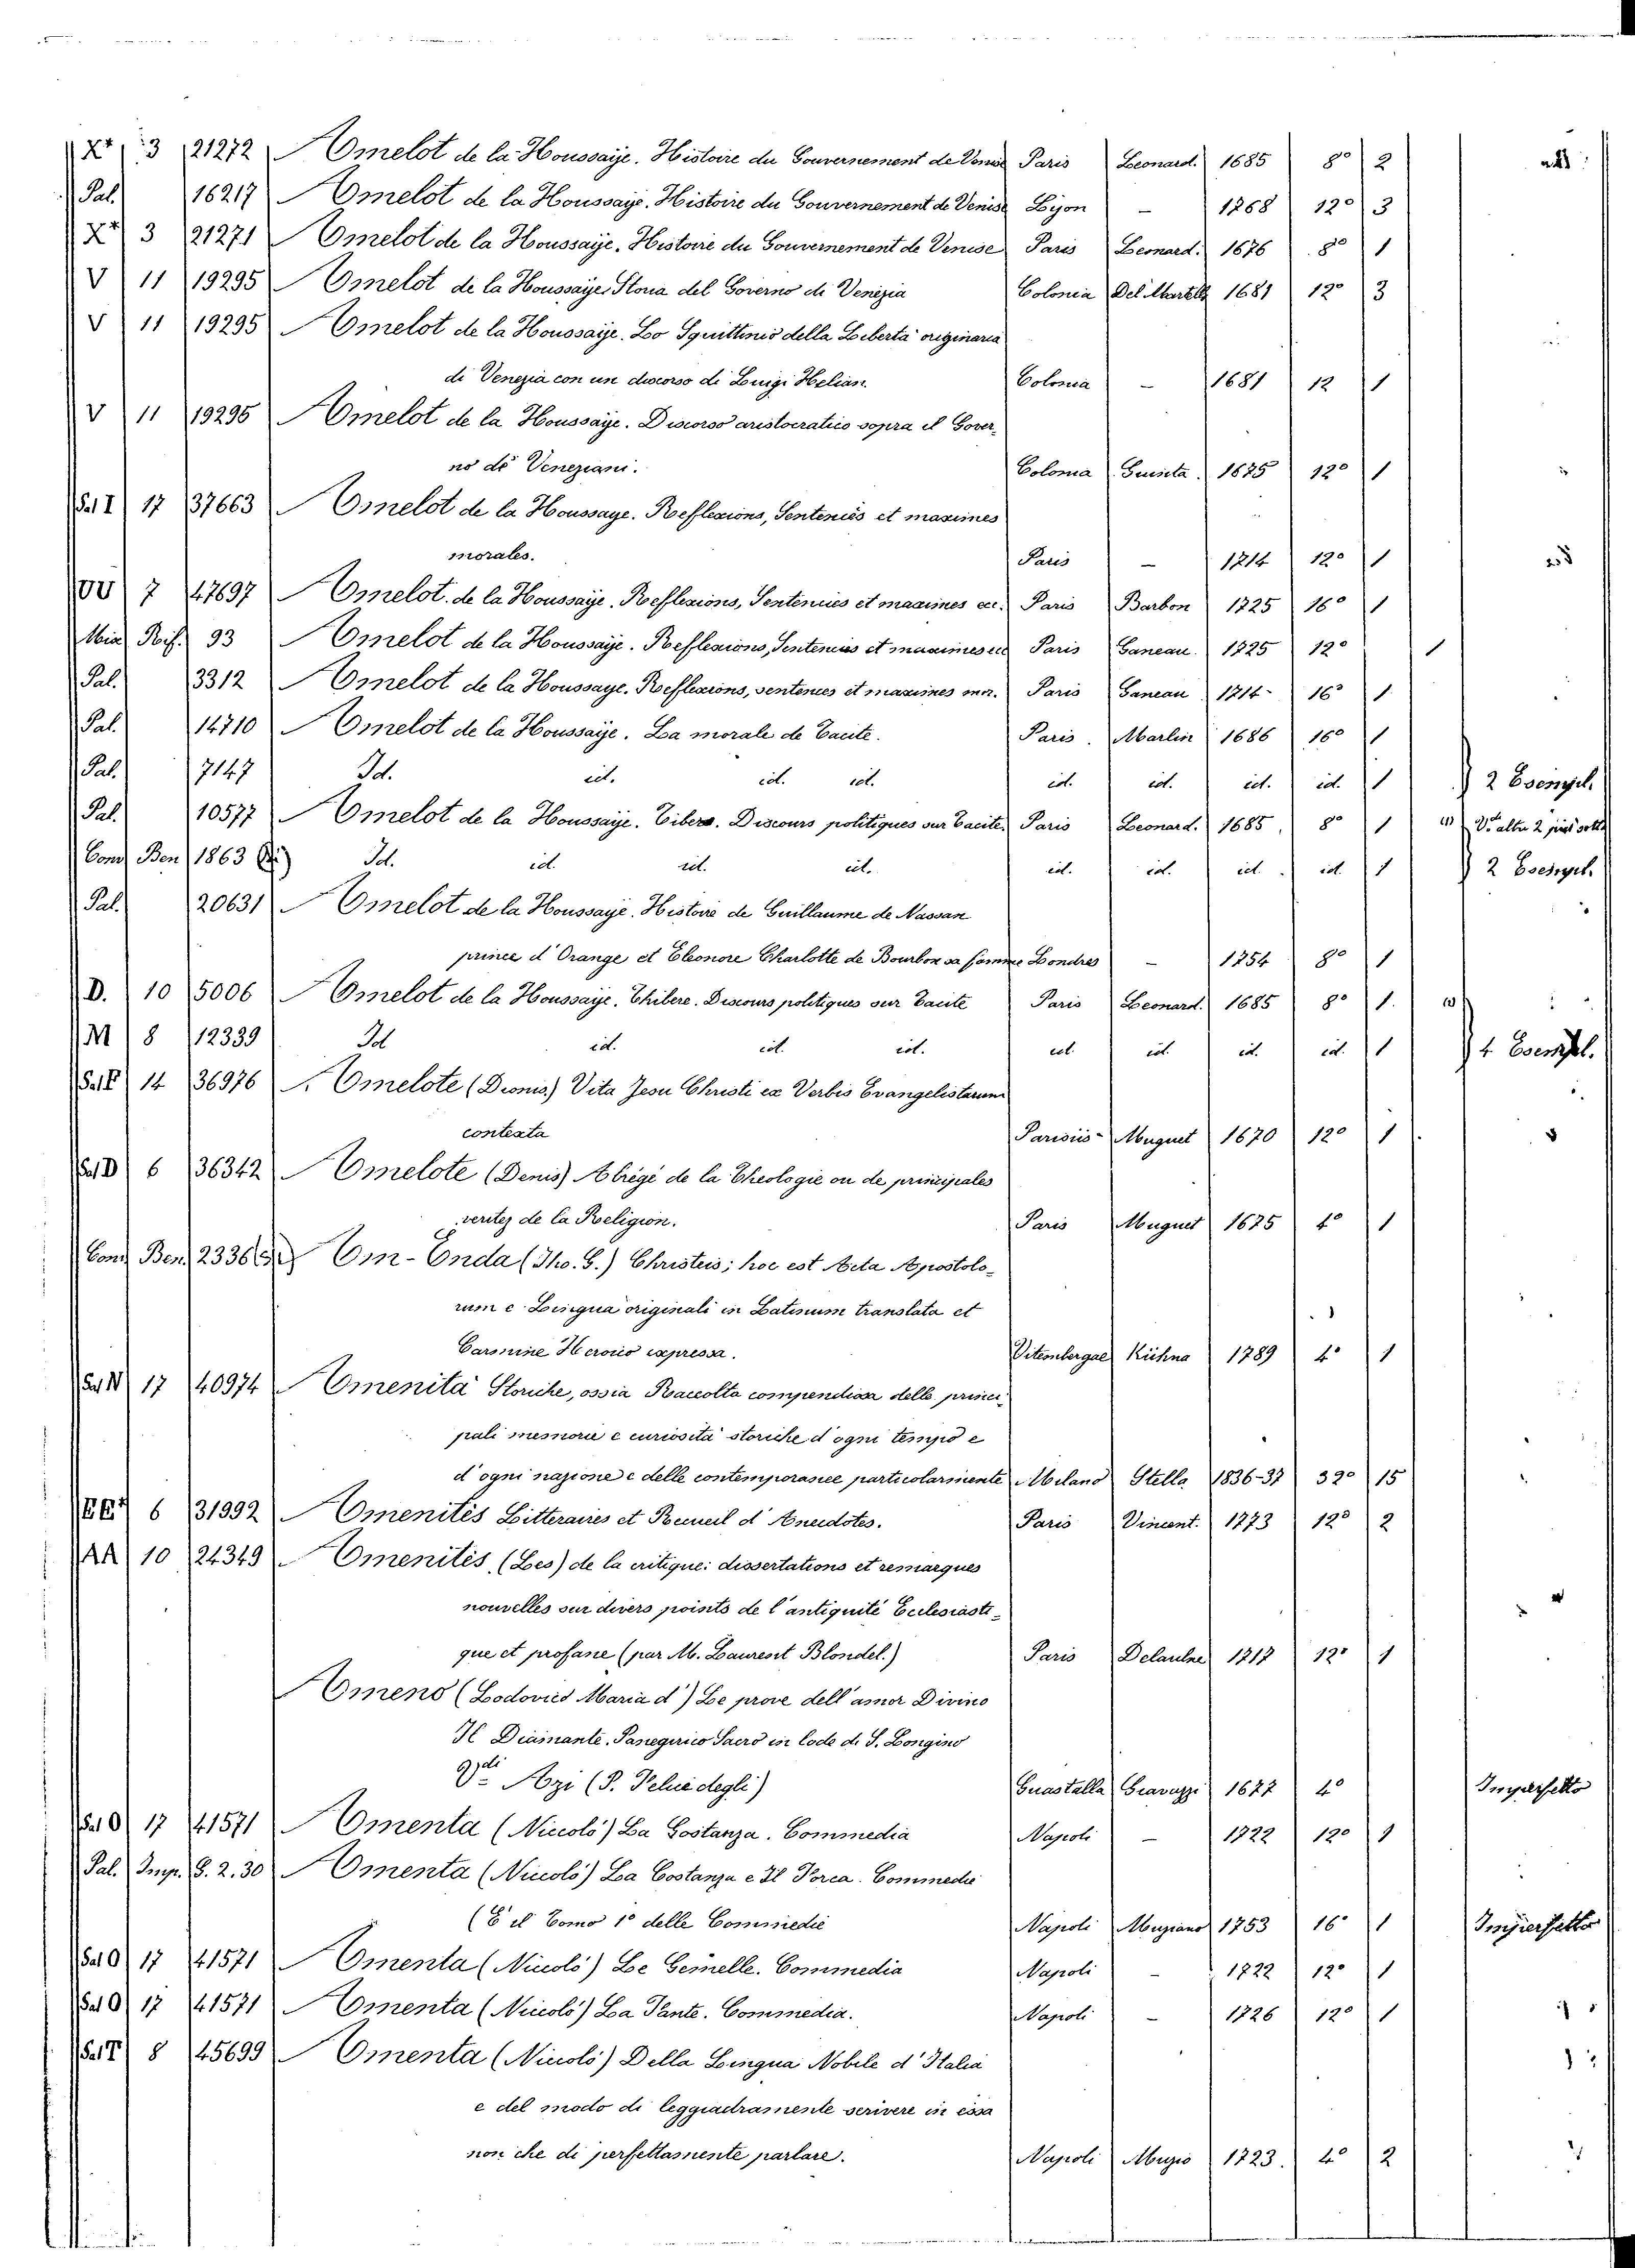 X+ 3 21272 Amelot de la Houssaÿe. Histoire du Gouvernement de Venise Paris Leonard. 1685 8° 2
Pal. 16217 Amelot de la Houssaÿe. Histoire du Gouvernement de Venise Lÿon – 1768 12° 3
X+ 3 21271 Amelot de la Houssaÿe. Histoire du Gouvernement de Venise Paris Leonard. 1676 8° 1
V 11 19295 Amelot de la Houssaÿe Storia del Governo di Venezia Colonia Del Martello 1681 12° 3
V 11 19295 Amelot de la Houssaÿe. Lo Squittinio della Libertà originaria
di Venezia con un discorso di Luigi Helian. Colonia – 1681 12 1
V 11 19295 Amelot de la Houssaÿe. Discorso aristocratico sopra il Gover-
no de' Veneziani. Colonia 1675 12° 1
Sal I 17 37663 Amelot de la Houssaye. Reflexions, Sentences et maximes
morales. Paris – 1714 12° 1
VV 7 47697 Amelot. de la Houssaÿe. Reflexions, Sentences et maximes ec. Paris Barbon 1725 16° 1
Min. Rif. 93 Amelot de la Houssaÿe. Reflexions, Sentences et maximes ec Paris Ganeau. 1725 12° 1
Pal. 3312 Amelot de la Houssaye. Reflexions, sentences et maximes mor. Paris Ganeau 1714 16° 1
Pal. 14710 Amelot de la Houssaÿe. La morale de Tacite. Paris. Martin 1686 16° 1
Pal. 7147 Id. id. id. id. id. id. id. id. 1 2 Esempl.
Pal. 10577 Amelot de la Houssaÿe. Tibere. Discours politiques sur Tacite. Paris Leonard. 1685 8° 1 (1) V. altri 2 più sotto
Cond Ben 1863 Id. id. id. id. id. id. id. id. 1 2 Esempl.
Pal. 20631 Amelot de la Houssaye. Histoire de Guillaume de Nassau
prince d'Orange et Eleonore Charlotte de Bourbon sa femme Londres – 1754 8° 1
D. 10 5006 Amelot de la Houssaÿe. Thibere. Discours politiques sur Tacite Paris Leonard. 1685 8° 1.
M 8 12339 Id id. id. id. id. id. id. id. 1 4 Esempl.
Sal E 14 36976 Amelote (Dionis.) Vita Jesu Christi ex Verbis Evangelistarum
contexta Parisiis Muguet 1670 12° 1
Sal D 6 36342 Amelote (Denis) Abrégé de la Theologie ou de principales
veritez de la Religion. Paris Muguet 1675 4° 1
Cond Ben. 2336 Am-Enda (Tho. G.) Christeis; hoc est Acta Apostolo-
rum e Lingua originali in Latinum translata et
Carmine Heroico expressa. Vitembergae Kühna 1789 4° 1
Sal N 17 40974 Amenità Storiche, ossia Raccolta compendiosa delle princi-
pali memorie e curiosità storiche d'ogni tempo e
d'ogni nazione e delle contemporanee particolarmente Milano Stella 1836-37 32° 15
EE+ 6 31992 Amenités Litteraires et Recueil d'Anecdotes. Paris Vincent. 1773 12° 2
AA 10 24349 Amenités (Les) de la critique: dissertations et remarques
nouvelles sur divers points de l'antiquité Ecclesiasti-
que et profane (par M. Laurent Blondel.) Paris Delaulne 1717 12° 1
Ameno (Lodovico Maria d') Le prove dell'amor Divino
Il Diamante. Panegirico Sacro in lode di S. Longino
Vdi Azi (P. Felice degli) Guastalla Giavazzi 1677 4° Imperfetto
Sal O 17 41571 Amenta (Niccolò) La Costanza. Commedia Napoli – 1722 12° 1
Pal. Imp. G. 2. 30 Amenta (Niccolò) La Costanza e Il Forca. Commedie
(È il Tomo 1° delle Commedie Napoli Muziano 1753 16° 1 Imperfetto
Sal O 17 41571 Amenta (Niccolò) Le Gemelle. Commedia Napoli – 1722 12° 1
Sal O 17 41571 Amenta (Niccolò) La Fante. Commedia. Napoli – 1726 12° 1
Sal T 8 45699 Amenta (Niccolò) Della Lingua Nobile d'Italia
e del modo di leggiadramente scrivere in essa
non che di perfettamente parlare. Napoli Muzio 1723. 4° 2